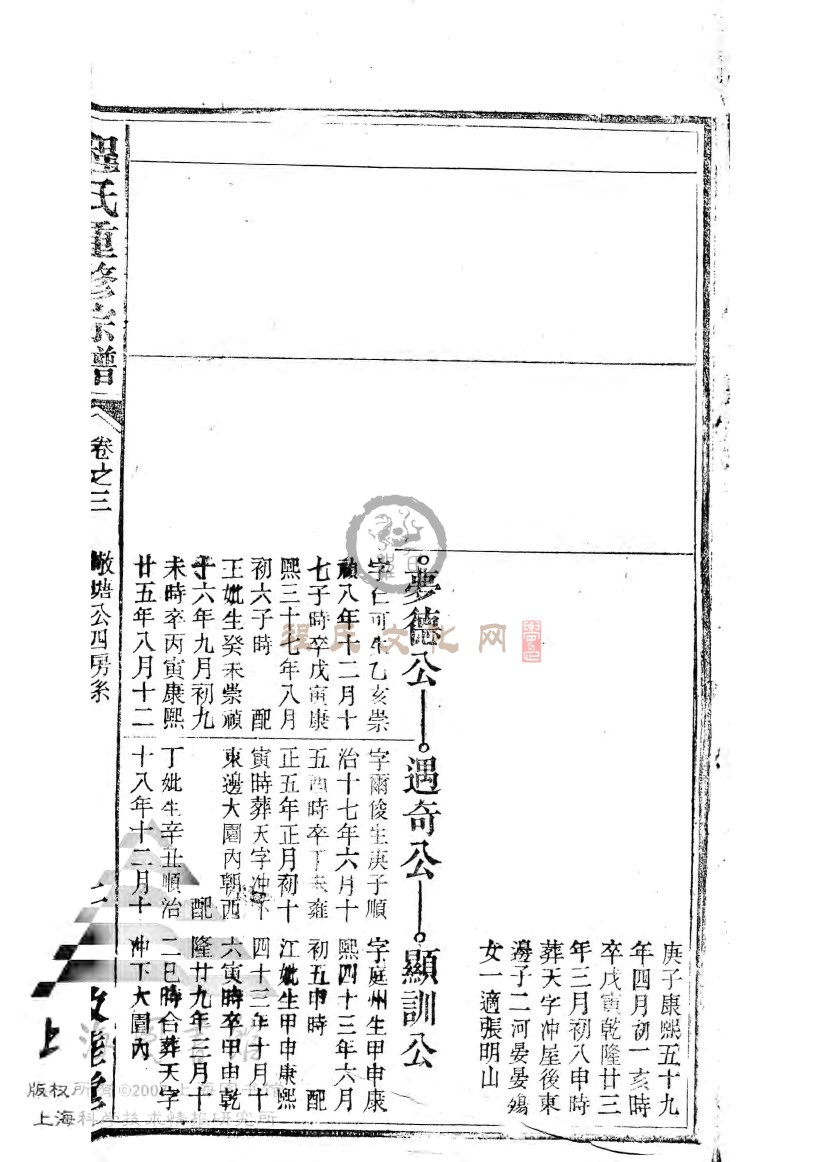 庚子康熙五十九
年四月初一亥時
卒戊寅乾隆廿三
年三月初八申時
葬天字冲屋後東
邊子二河晏晏鳴
女一適張明山
夢德公
遇奇公
顯訓公
字仁可生乙亥崇
禎八年十二月十
七子時卒戊寅康
熙三十七年八月
初六子時 配
王妣生癸未崇禎
十六年九月初九
未時卒丙寅康熙
廿五年八月十二
字爾俊生庚子順
治十七年六月十
五酉時卒丁未雍
正五年正月初十
寅時葬天字冲下
東邊大園內朝西
配
丁妣生辛丑順治
十八年十二月十
字庭州生甲申康
熙四十三年六月
初五申時 配
江妣生甲申康熙
四十三年十月十
六寅時卒甲申乾
隆廿九年三月十
二巳時合葬天字
冲下大園內
程氏重修宗譜
卷之三
敬塘公四房系
程氏文化网
版权所有©2002上海图书馆
上海科学技术情报研究所